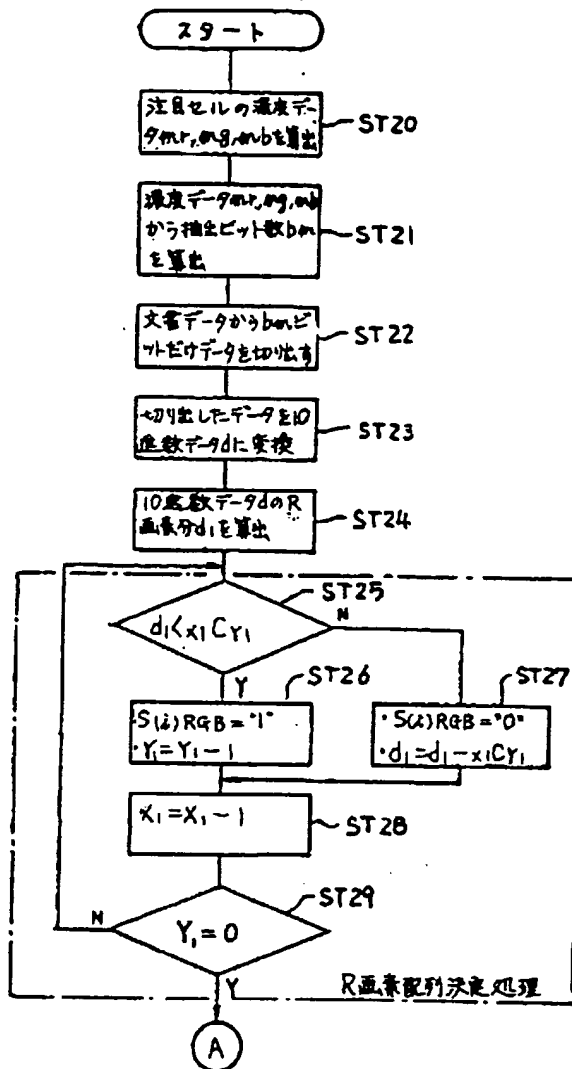 スタート
注目セルの濃度デー
タmr,mg,mbを算出
ST20
濃度データmr,mg,mb
から抽出ビット数bm
を算出
ST21
文書データからbmビ
ットだけデータを切り出す
ST22
切り出したデータを10
進数データdに変換
ST23
10進数データdのR
画素分d₁を算出
ST24
ST25
d₁<x₁CY₁
N
Y
ST26
・S(i)RGB="1"
・Y₁=Y₁-1
ST27
・S(i)RGB="0"
・d₁=d₁-x₁CY₁
x₁=x₁-1
ST28
ST29
N
Y₁=0
Y
R画素配列決定処理
A